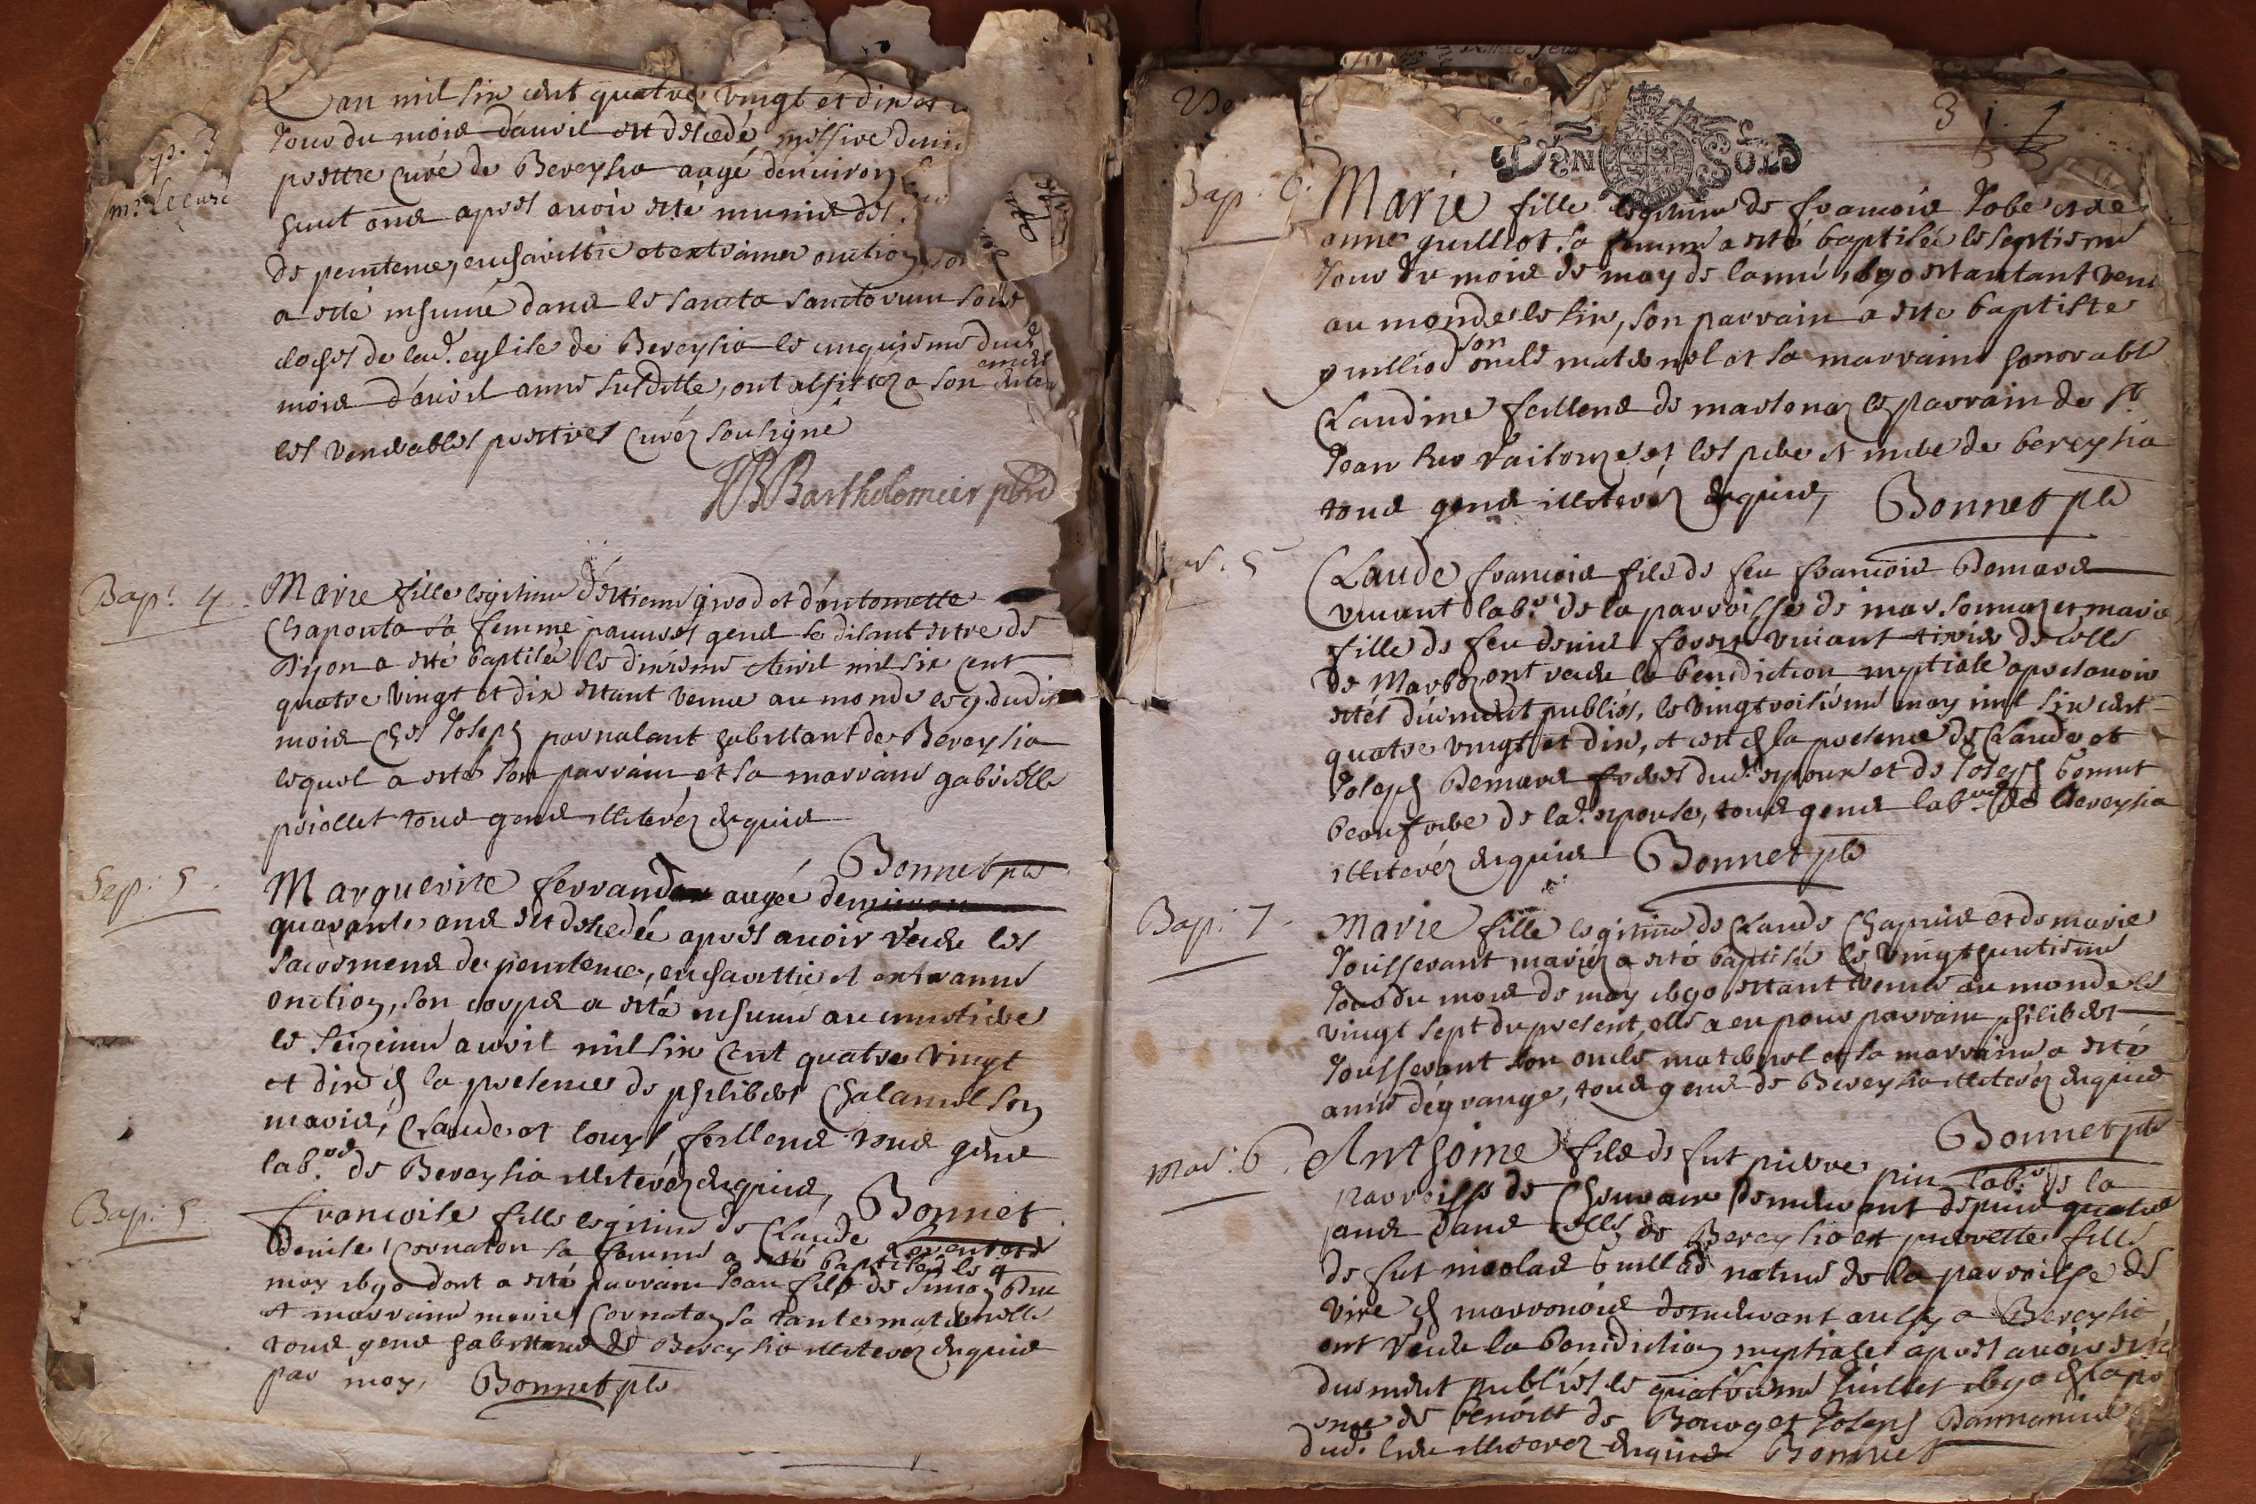 Sep. 3
mre. Le Curé
L'an mil six cent quatre vingt et dix et
Jour du mois d'auril est decedé messire denis
prestre curé de Bereysia aagé denuiron
huit ans apres auoir esté munis des
de penitence, eucharistie et extreme onction, son
a esté inhumé dans le sancta sanctorum sous
cloches de lad. eglise de Bereysia le cinquieme dud.
mois d'auril année susditte, ont assistez a son
les venerables prestres curéz soussigné
JB Bartholomier
Bap. 4.
Marie fille legitime d'estienne girod et d'antoinette
Chaponta sa femme pauures gens se disant estre de
Dijon a esté baptisée le dixieme Auril mil six cent
quatre vingt et dix estant venue au monde le 9. dudit
mois chez Joseph pornalant habittant de Bereysia
lequel a esté son parrain et sa marraine gabrielle
priollet tous gens illiteréz enquis
Bonnet pbr
Sep. 5.
Marguerite ferrand aagée denuiron
quarante ans est decedée apres auoir receu les
sacremens de penitence, eucharistie et extreme
onction, son corps a esté inhumé au cimetiere
le seizieme auril mil six cent quatre vingt
et dix en la presence de philibert Chalamel son
maris, Claude et Louys feillens tous gens
labrs. de Bereysia illiteréz enquis,
Bonnet
Bap. 5.
Francoise fille legitime de Claude
denise Cornaton sa femme a esté baptisée le 9
may 1690 dont a esté parrain Jean fils de Simon
et marraine marie Cornaton sa tante maternelle
tous gens habittans de Bereysia illiterez enquis
par moy, Bonnet pbr
3
DEN SOLS
Bap. 6.
Marie fille legitime de francois Jobe et de
anne guilliot sa femme a esté baptisée le septieme
Jour du mois de may de lanné 1690 estant venu
au monde le six, son parrain a esté baptiste
guilliod son oncle maternel et sa marraine honorable
Claudine feillens de marsonaz le parrain de St.
Jean sur raisouze et les pere et mere de bereysia
tous gens illiteréz enquis, Bonnet pbr
Mar. 5
Claude francois fils de feu francois Bemard
viuant labr. de la parroisse de marsonnaz et marie
fille de feu denis viuant de celle
de Marboz ont receu la benediction nuptiale apres auoir
estés düement publiés, le vingtroisiéme may mil six cent
quatre vingt et dix, et ce en la presence de Claude et
Joseph Bemard freres dud. espoux et de Joseph bonnut
beaufrere de lad. espouse, tous gens labrs. de Bereysia
illiteréz enquis Bonnet pbr
Bap. 7.
Marie fille legitime de Claude Chapuis et de marie
Jousserant mariéz a esté baptisée le vingthuitieme
Jour du mois de may 1690 estant venue au monde le
vingt sept du present, elle a eu pour parrain philibert
Jousserant son oncle maternel et sa marraine a esté
anne dégrange, tous gens de Bereysia illiteréz enquis
Bonnet pbr
Mar. 6.
Anthoine fils de fut pierre pin labr. de la
parroisse de demeurant depuis quatre
ans dans celle de Bereysia et pierrette fille
de fut nicolas natiue de la parroisse de
vire en marconois demeurant aussy a Bereysia
ont receu la benediction nuptiale apres auoir esté
duement publiés le quatrieme Juillet 1690 en la pre
sence de benoist de Bourg et Joseph Dannanins
dud. lieu illiterez enquis Bonnet